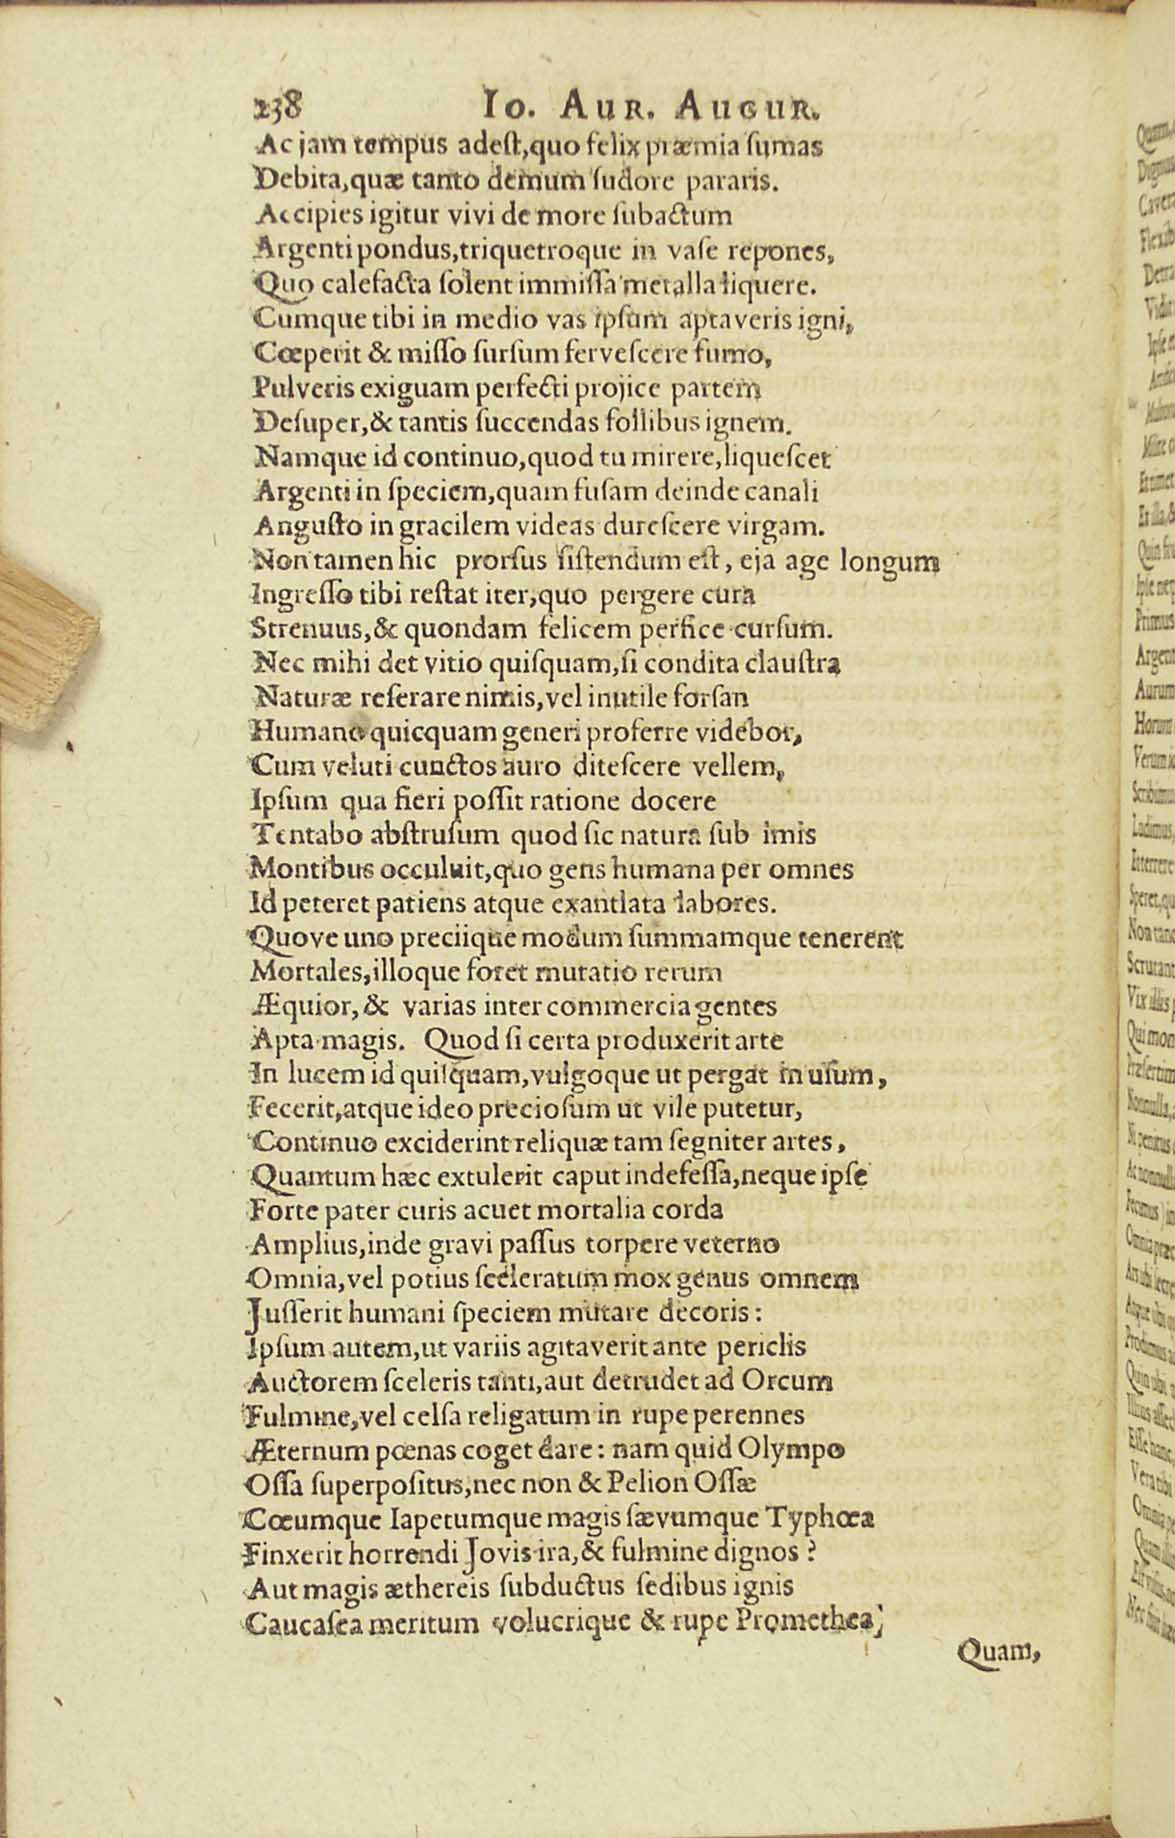 238 Io. Aur. Augur.
Ac jam tempus adest, quo felix præmia sumas
Debita, quæ tanto demum sudore pararis.
Accipies igitur vivi de more subactum
Argenti pondus, triquetroque in vase repones,
Quo calefacta solent immissa metalla liquere.
Cumque tibi in medio vas ipsum aptaveris igni,
Cœperit & misso sursum fervescere fumo,
Pulveris exiguam perfecti projice partem
Desuper, & tantis succendas follibus ignem.
Namque id continuo, quod tu mirere, liquescet
Argenti in speciem, quam fusam deinde canali
Angusto in gracilem videas durescere virgam.
Non tamen hic prorsus sistendum est, eja age longum
Ingresso tibi restat iter, quo pergere cura
Strenuus, & quondam felicem perfice cursum.
Nec mihi det vitio quisquam, si condita claustra
Naturæ reserare nimis, vel inutile forsan
Humano quicquam generi proferre videbor,
Cum veluti cunctos auro ditescere vellem,
Ipsum qua fieri possit ratione docere
Tentabo abstrusum quod sic natura sub imis
Montibus occuluit, quo gens humana per omnes
Id peteret patiens atque exantlata labores.
Quove uno preciique modum summamque tenerent
Mortales, illoque foret mutatio rerum
Æquior, & varias inter commercia gentes
Apta magis. Quod si certa produxerit arte
In lucem id quisquam, vulgoque ut pergat in usum,
Fecerit, atque ideo preciosum ut vile putetur,
Continuo exciderint reliquæ tam segniter artes,
Quantum hæc extulerit caput indefessa, neque ipse
Forte pater curis acuet mortalia corda
Amplius, inde gravi passus torpere veterno
Omnia, vel potius sceleratum mox genus omnem
Jusserit humani speciem mutare decoris:
Ipsum autem, ut variis agitaverit ante periclis
Auctorem sceleris tanti, aut detrudet ad Orcum
Fulmine, vel celsa religatum in rupe perennes
Æternum pœnas coget dare: nam quid Olympo
Ossa superpositus, nec non & Pelion Ossæ
Cœumque Iapetumque magis sævumque Typhœa
Finxerit horrendi Jovis ira, & fulmine dignos?
Aut magis æthereis subductus sedibus ignis
Caucasea meritum volucrique & rupe Promethea;
Quam,